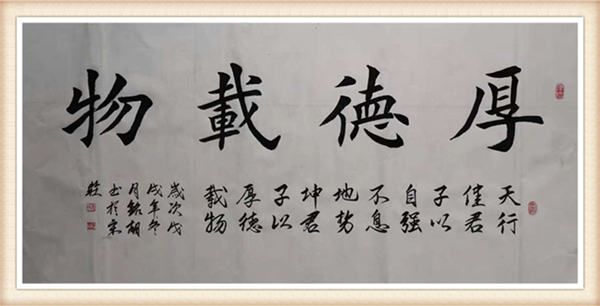 厚德載物
天行
佳君
子以
自强
不息
地势
坤君
子以
厚德
載物
歲次戊
戌年冬
月
书於京